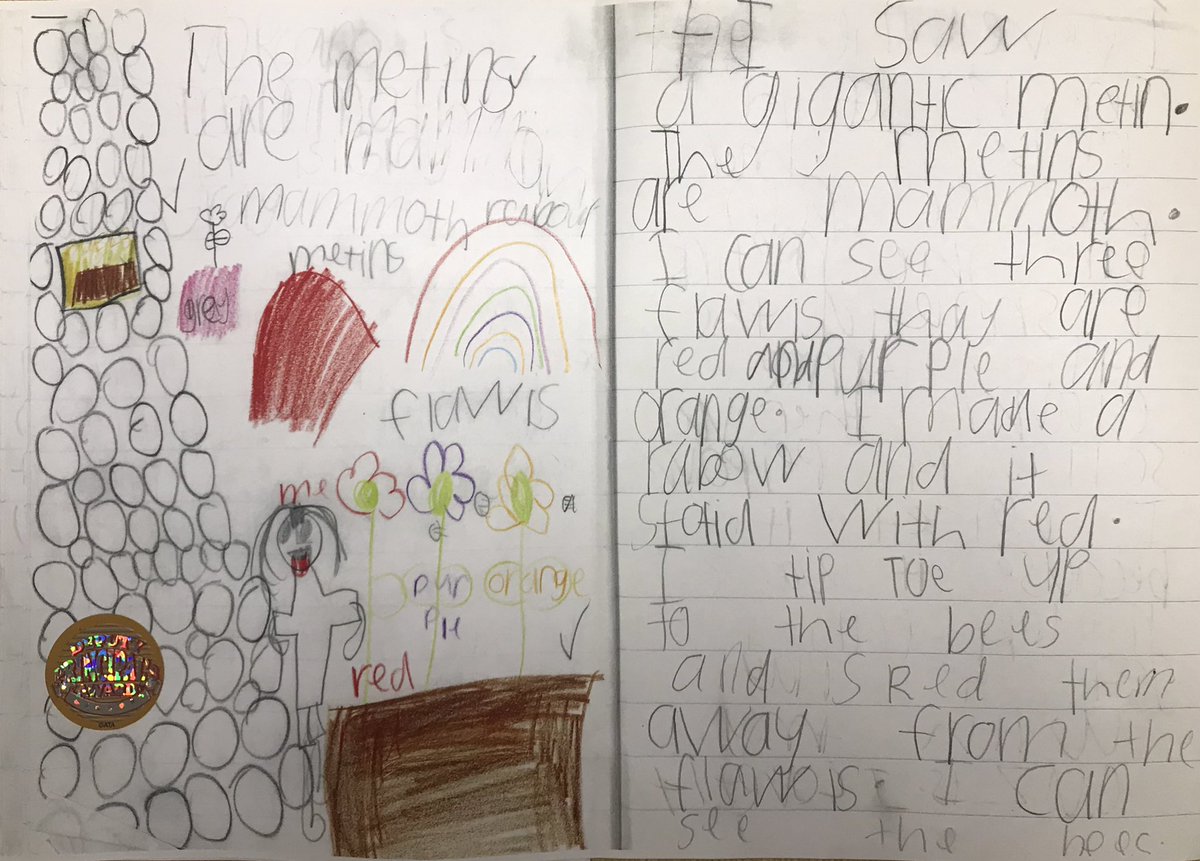 The metins
are
mammoth
metins
grey
flawis
me
purp
ple
orange
red
DEPUTY
PRINCIPAL'S
AWARD
I saw
a gigantic metin.
The metins
are mammoth.
I can see three
flawis thay are
red and purple and
orange. I made a
rabow and it
statid with red.
I tip toe up
to the bees
and sked them
away from the
flawis. I can
see the bees.